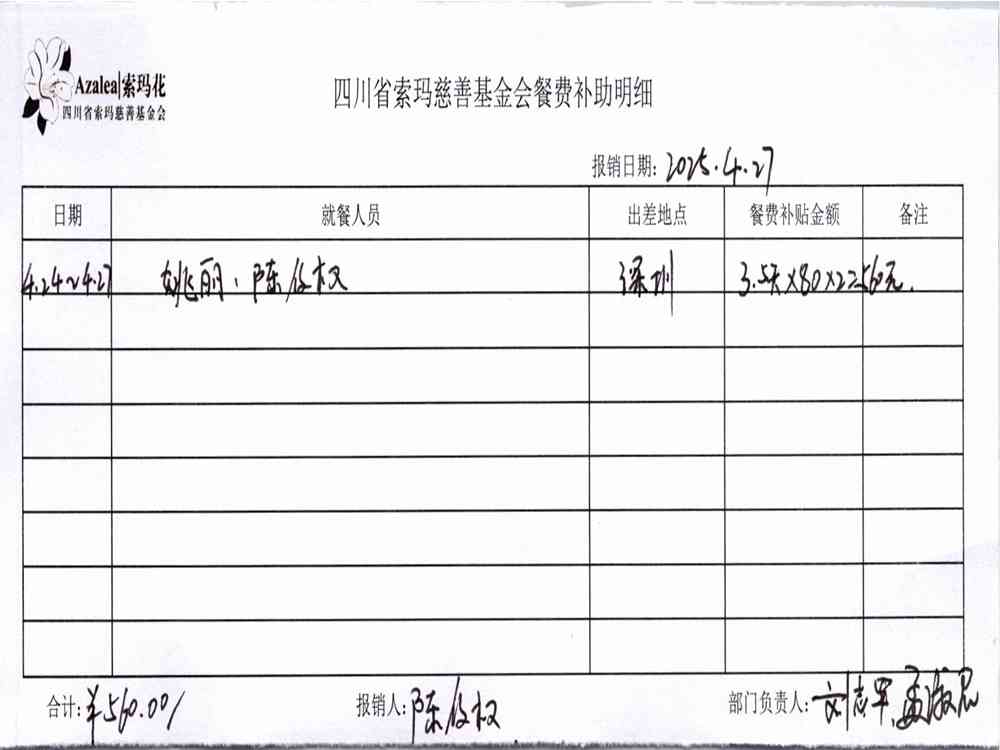 Azalea|索玛花
四川省索玛慈善基金会
四川省索玛慈善基金会餐费补助明细
报销日期: 2025.4.27
日期 就餐人员 出差地点 餐费补贴金额 备注
4.24~4.27 姚丽、陈俊权 深圳 3.5天×80×2=560元.
合计: ¥560.00/ 报销人: 陈俊权 部门负责人: 刘志军、